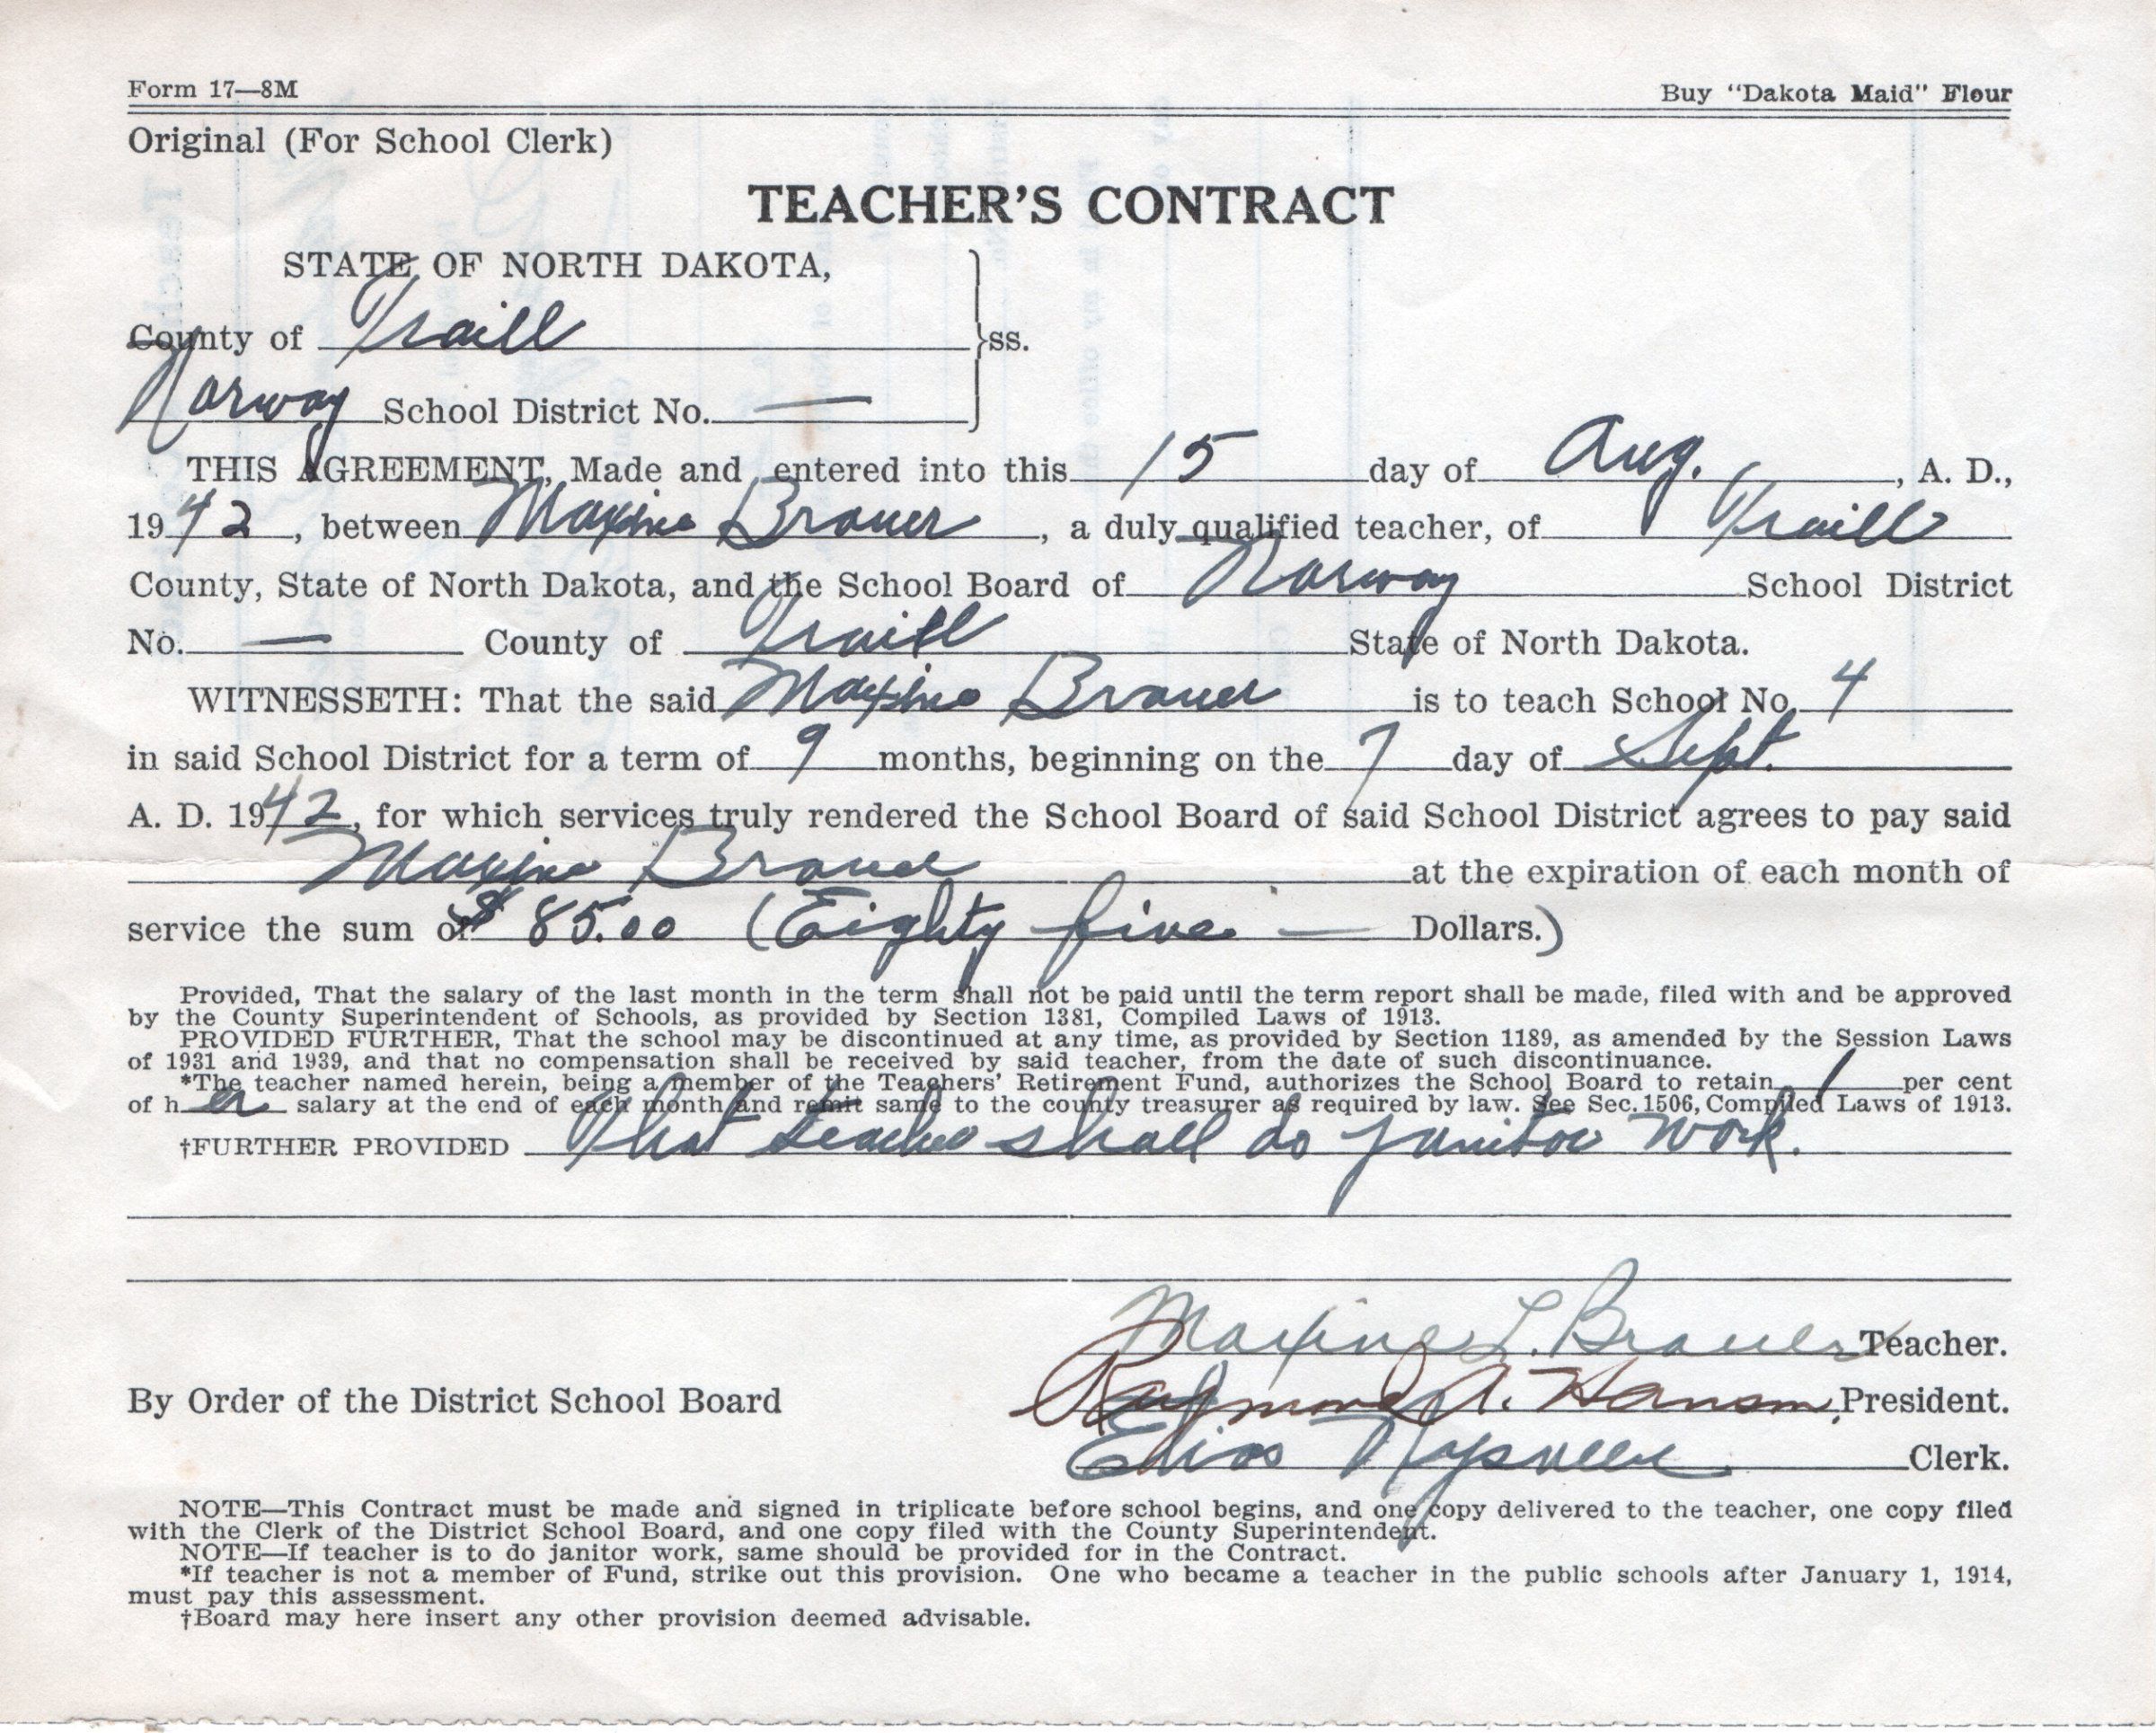 Form 17—8M Buy "Dakota Maid" Flour
Original (For School Clerk)
TEACHER'S CONTRACT
STATE OF NORTH DAKOTA,
County of Traill ss.
Norway School District No. —
THIS AGREEMENT, Made and entered into this 15 day of Aug., A. D.,
1942, between Maxine Brauer, a duly qualified teacher, of Traill
County, State of North Dakota, and the School Board of Norway School District
No. — County of Traill State of North Dakota.
WITNESSETH: That the said Maxine Brauer is to teach School No. 4
in said School District for a term of 9 months, beginning on the 7 day of Sept.
A. D. 1942, for which services truly rendered the School Board of said School District agrees to pay said
Maxine Brauer at the expiration of each month of
service the sum of $ 85.00 (Eighty five — Dollars.)
Provided, That the salary of the last month in the term shall not be paid until the term report shall be made, filed with and be approved
by the County Superintendent of Schools, as provided by Section 1381, Compiled Laws of 1913.
PROVIDED FURTHER, That the school may be discontinued at any time, as provided by Section 1189, as amended by the Session Laws
of 1931 and 1939, and that no compensation shall be received by said teacher, from the date of such discontinuance.
*The teacher named herein, being a member of the Teachers' Retirement Fund, authorizes the School Board to retain 1 per cent
of her salary at the end of each month and remit same to the county treasurer as required by law. See Sec. 1506, Compiled Laws of 1913.
†FURTHER PROVIDED That teacher shall do janitor work.
Maxine L. Brauer Teacher.
By Order of the District School Board Raymond A. Hanson, President.
Elias Nysveen Clerk.
NOTE—This Contract must be made and signed in triplicate before school begins, and one copy delivered to the teacher, one copy filed
with the Clerk of the District School Board, and one copy filed with the County Superintendent.
NOTE—If teacher is to do janitor work, same should be provided for in the Contract.
*If teacher is not a member of Fund, strike out this provision. One who became a teacher in the public schools after January 1, 1914,
must pay this assessment.
†Board may here insert any other provision deemed advisable.